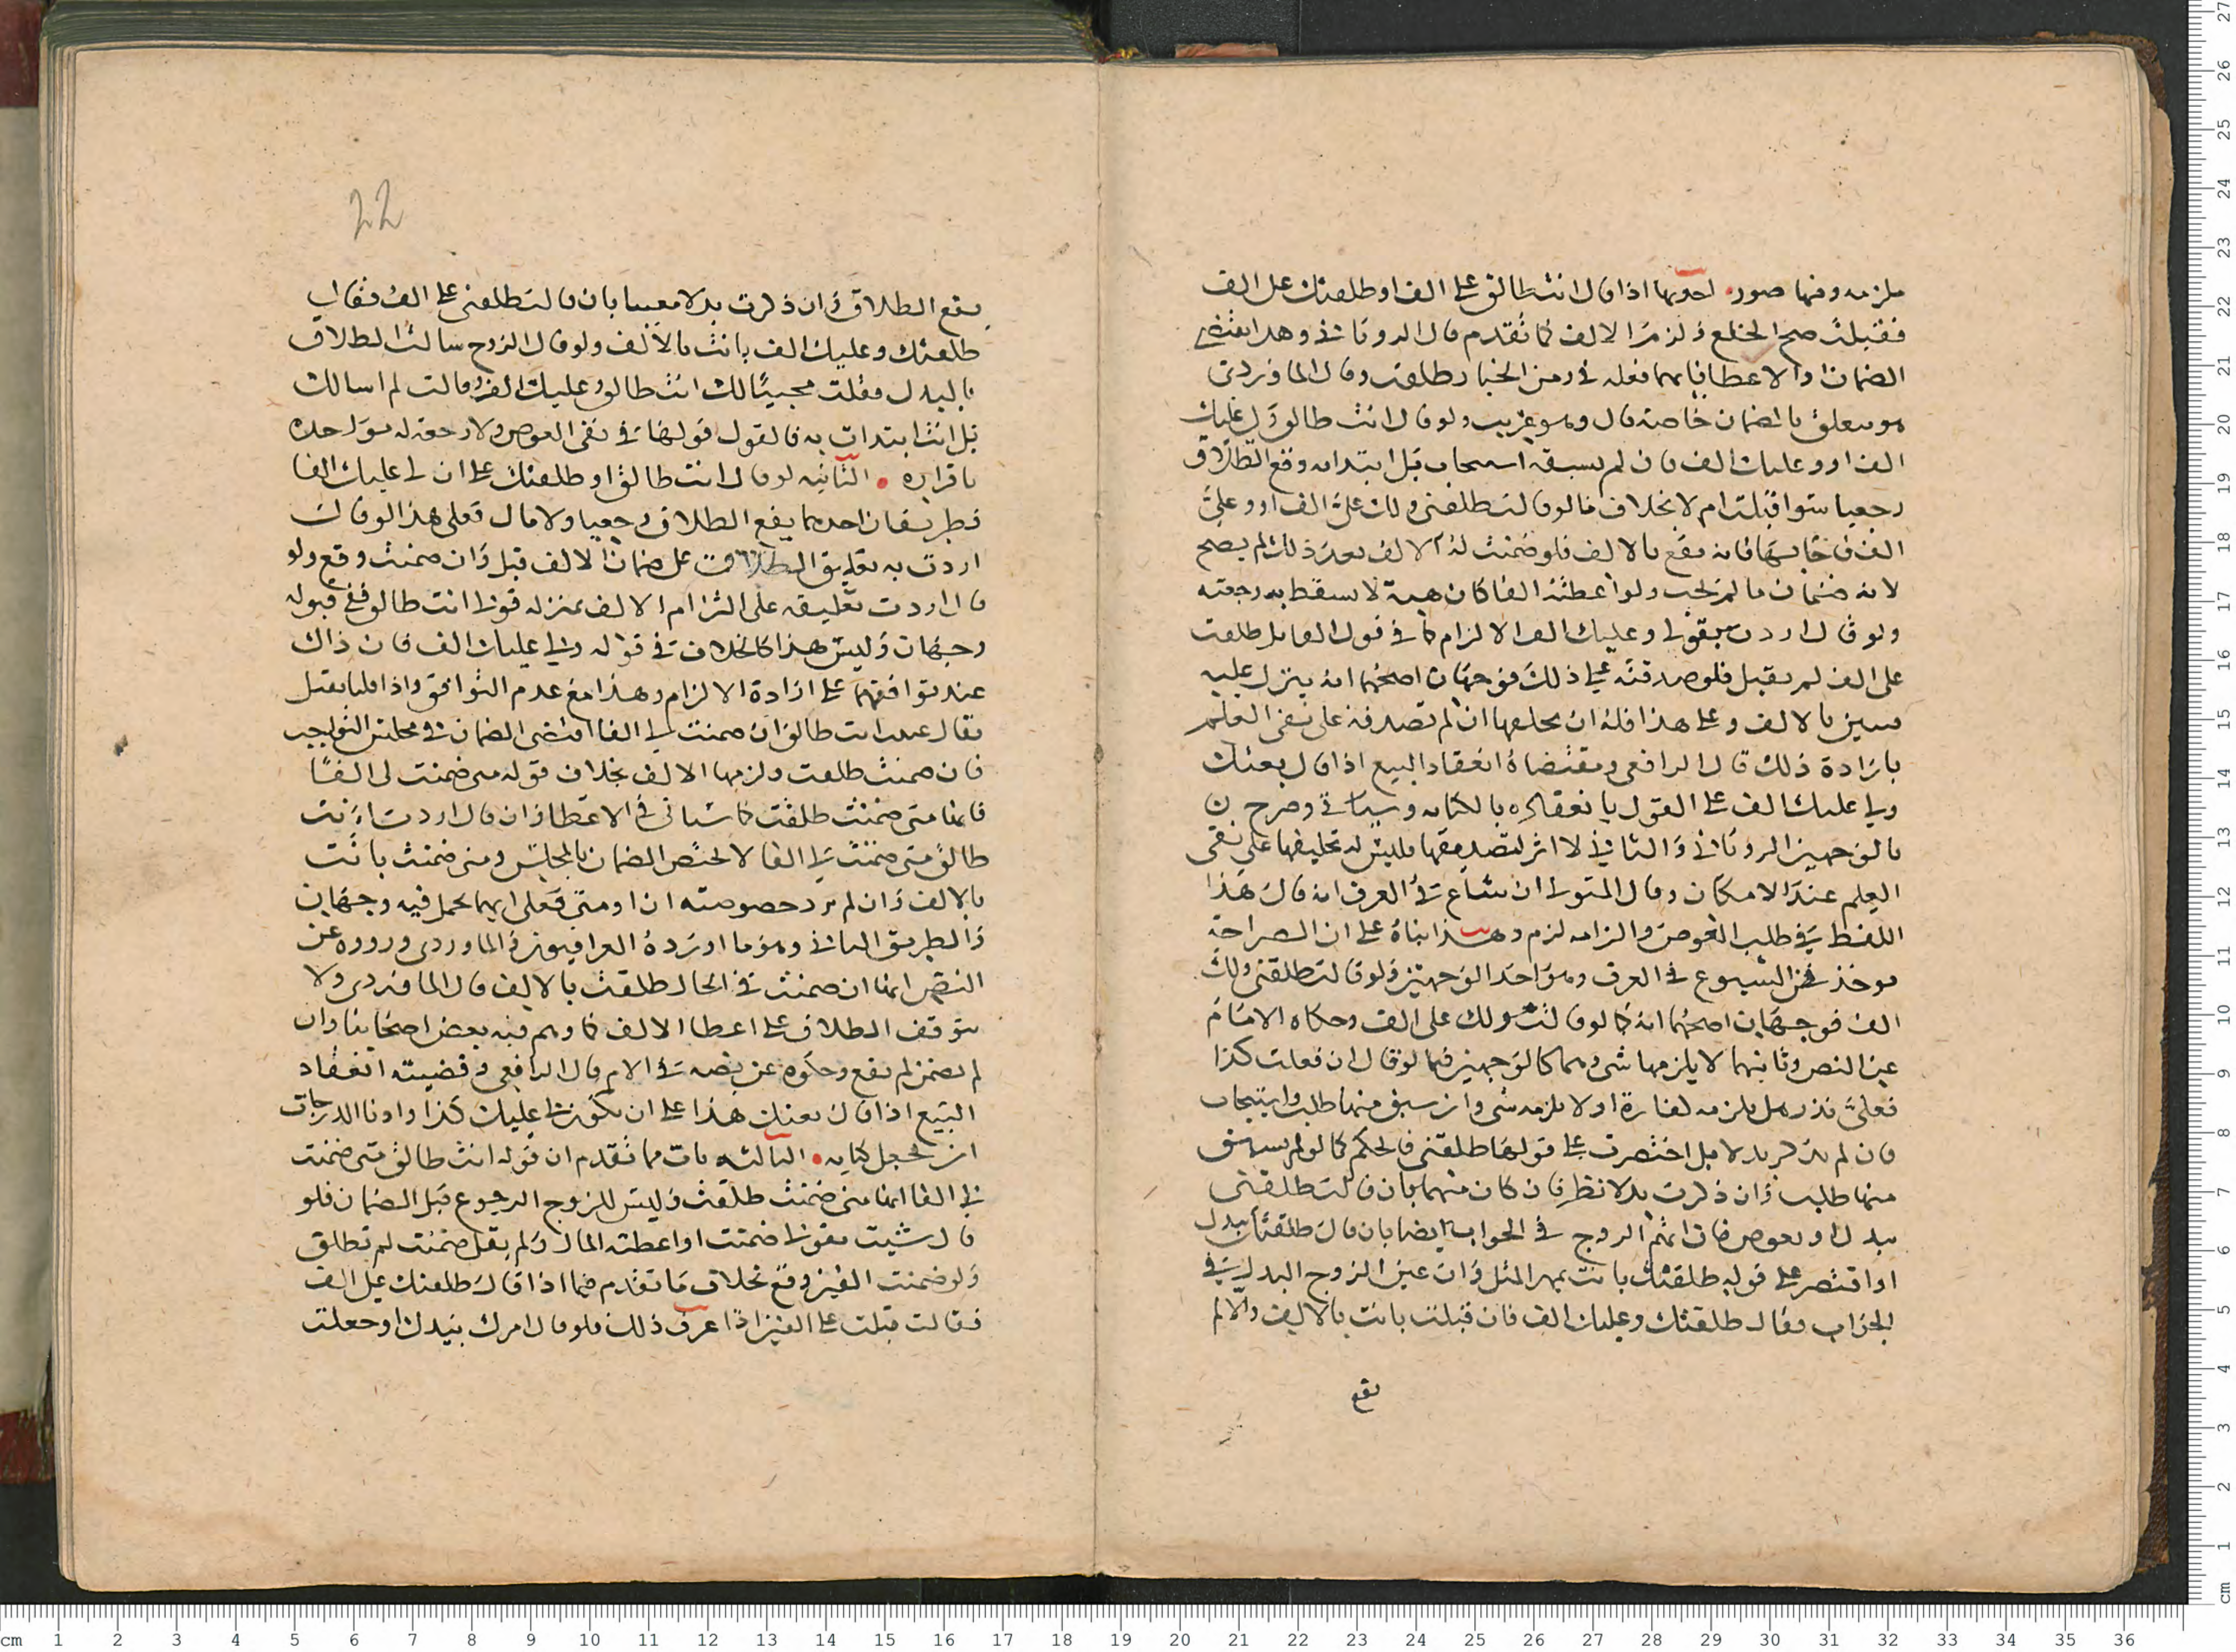 ملزمه ومنها صور احديها اذا قال انت طالق على الف او طلقتك على الف
فقبلت صح الخلع ولزم الالف كما تقدم قال الروياني وهذا يقتضي
الضمان والاعطا فايهما فعله في زمن الخيار طلقت وقال الماوردي
هو متعلق بالضمان خاصة قال وهو غريب ولو قال انت طالق ولي عليك
الف او وعليك الف فان لم يسبقه استيجاب بل ابتدا به وقع الطلاق
رجعيا سوا قبلت ام لا بخلاف ما لو قالت طلقني ولك علي الف او وعلي
الف فاجابها فانه يقع بالالف فلو ضمنت له الالف بعد ذلك لم يصح
لانه ضمان ما لم يجب ولو اعطته الفا كان هبة لا يسقط به رجعته
ولو قال اردت بقولي وعليك الف الالزام كما في قول القايل طلقت
على الف لم يقبل فلو صدقته على ذلك فوجهان اصحهما انه ينزل عليه
فتبين بالالف وعلى هذا فله ان يحلفها ان لم تصدقه على نفي العلم
بارادة ذلك قال الرافعي ومقتضاه انعقاد البيع اذا قال بعتك
ولي عليك الف على القول بانعقاده بالكنايه وسياتي وصرح به
بالوجهين الروياني والثاني لا اثر لتصديقها فليس له تحليفها على نفي
العلم عند الامكان وقال المتولي ان شاع في العرف انه قال هذا
اللفظ في طلب العوض والزامه لزم وهذا بناة على ان الصراحة
توخذ من الشيوع في العرف وهو احد الوجهين ولو قالت طلقني ولك
الف فوجهان اصحهما انه كما لو قالت ولك على الف وحكاه الامام
عن النص وثانيهما لا يلزمها شي وهما كالوجهين فيما لو قال ان فعلت كذا
فعلي نذر هل يلزمه كفارة او لا يلزمه شي وان سبق منها طلب واستيجاب
فان لم يذكر بدلا بل اختصرت على قولها طلقني فالحكم كما لو لم يسبق
منها طلب وان ذكرت بدلا نظر فان كان مبهما بان قالت طلقني
ببدل او بعوض فان ابهم الزوج في الجواب ايضا بان قال طلقتك ببدل
او اقتصر على قوله طلقتك بانت بمهر المثل وان عين الزوج البدل في
الجواب فقال طلقتك وعليك الف فان قبلت بانت بالالف والا لم
يقع
22
يقع الطلاق وان ذكرت بدلا معينا بان قالت طلقني على الف فقال
طلقتك وعليك الف بانت بالالف ولو قال الزوج سالت الطلاق
بالبدل فقلت مجيبا لك انت طالق وعليك الف وقالت لم اسالك
بل انت ابتدات به فالقول قولها في نفي العوض ولا رجعة له مواخدة
باقراره الثانيه لو قال انت طالق او طلقتك على ان لي عليك الفا
فطريقان احدهما يقع الطلاق رجعيا ولا مال فعلى هذا لو قال
اردت به تعليق الطلاق على ضمان الالف قبل وان ضمنت وقع ولو
قال اردت تعليقه على التزام الالف بمنزله قولي انت طالق ففي قبوله
وجهان وليس هذا كالخلاف في قوله ولي عليك الف فان ذاك
عند توافقهما على ارادة الالزام وهذا مع عدم التوافق واذا قلنا يقبل
فقال انت طالق ان ضمنت لي الفا اقتضى الضمان في مجلس التواجب
فان ضمنت طلقت ولزمها الالف بخلاف قوله متى ضمنت لي الفا
فانها متى ضمنت طلقت كما سياتي في الاعطا وان قال اردت انت
طالق متى ضمنت لي الفا لا يختص الضمان بالمجلس ومتى ضمنت بانت
بالالف وان لم يرد خصوصيه ان او متى فعلى ايهما يحمل فيه وجهان
والطريق الثاني وهو ما اورده العراقيون والماوردي ورووه عن
النص انها ان ضمنت في الحال طلقت بالالف قال الماوردي ولا
يتوقف الطلاق على اعطا الالف كما وهم فيه بعض اصحابنا وان
لم تضمن لم يقع وحكوه عن نصه في الام قال الرافعي وقضيته انعقاد
البيع اذا قال بعتك هذا على ان يكون لي عليك كذا وادنا الدرجات
ان يجعل كنايه الثالثه بان مما تقدم ان قوله انت طالق متى ضمنت
لي الفا انها متى ضمنت طلقت وليس للزوج الرجوع قبل الضمان فلو
قال شيت بقولي ضمنت او اعطته المال ولم يقل ضمنت لم تطلق
ولو ضمنت الفين وقع بخلاف ما تقدم فيما اذا قال طلقتك على الف
فقالت قبلت على الفين اذا عرف ذلك فلو قال امرك بيدك او جعلت